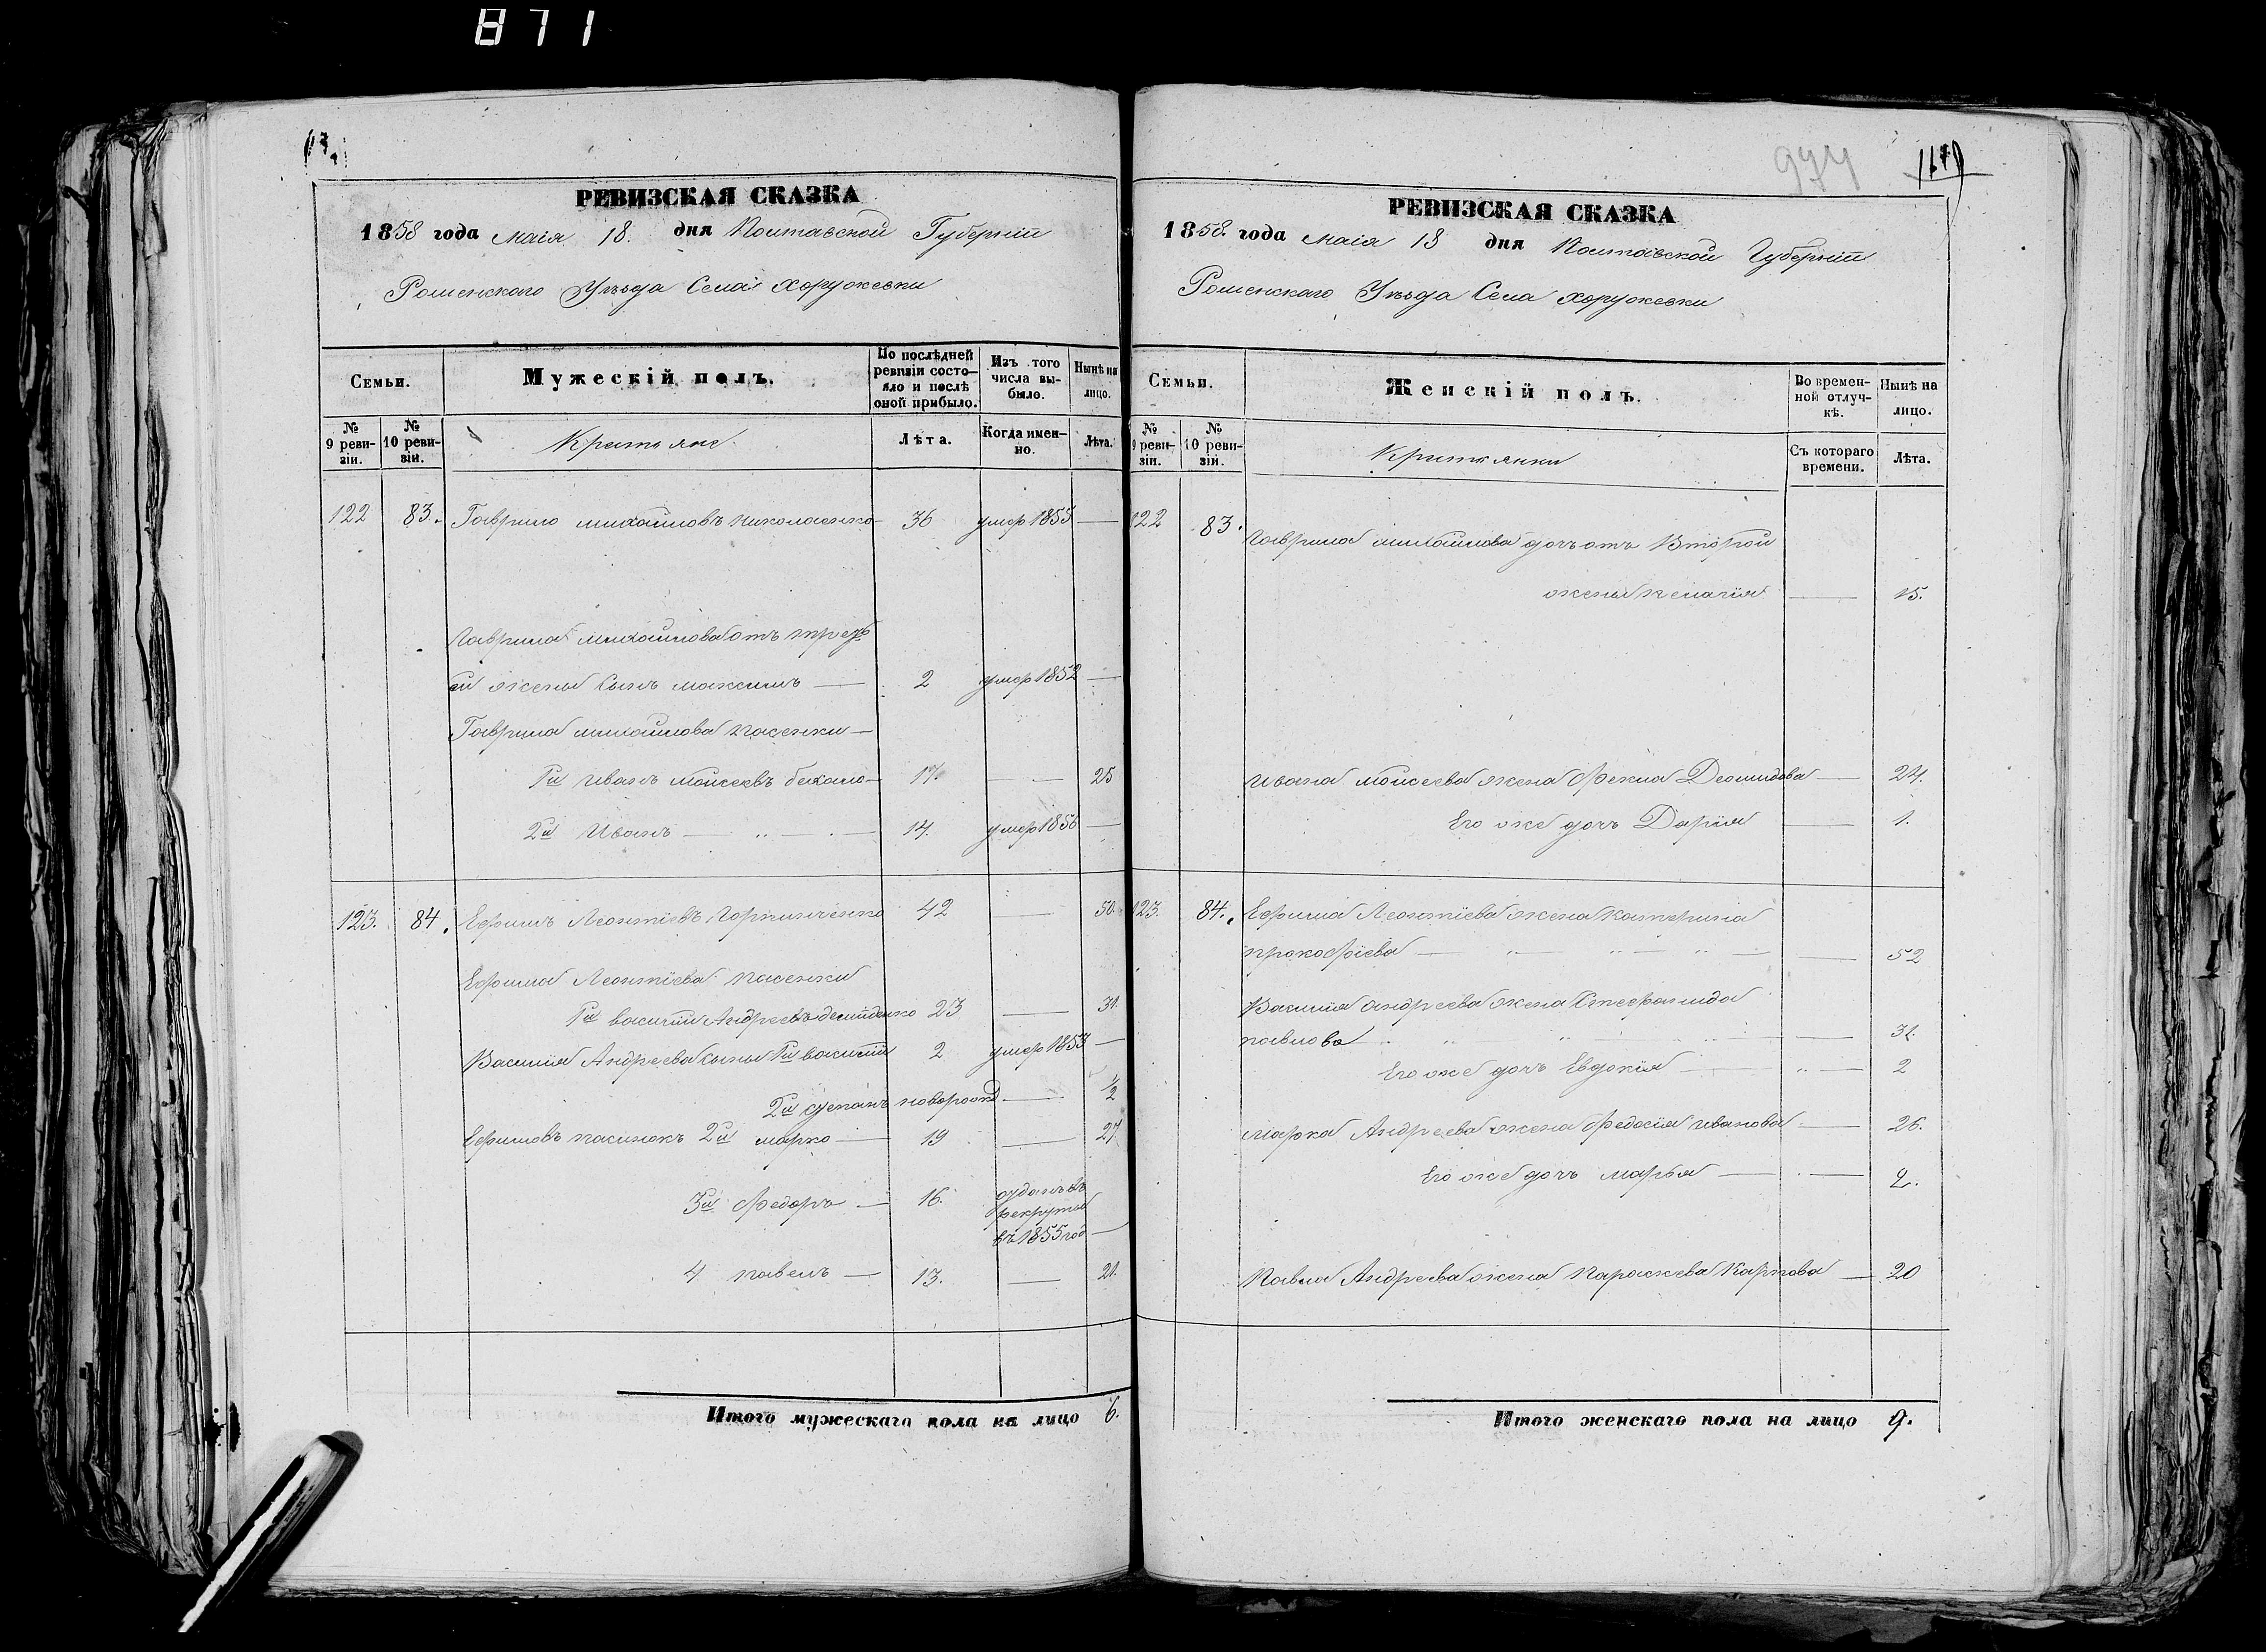 871
РЕВИЗСКАЯ СКАЗКА
1858 года Маія 18. дня Полтавской Губерніи
Роменскаго Уѣзда Села Хоружевки
Семьи.
Мужескій полъ.
По послѣдней ревизіи состо-
яло и послѣ оной прибыло.
Изъ того числа вы-
было.
Нынѣ на лицо.
№ 9 реви-
зіи.
№ 10 реви-
зіи.
Крестьяне
Лѣта.
Когда имен-
но.
Лѣта.
122 83. Гаврило Михайловъ Николаенко 36 умер 1855 —
Гаврила Михайлова отъ треть
ей жены сынъ Максимъ — 2 умер 1852 —
Гаврила Михайлова пасенки —
1й Иванъ Моисеевъ 17. — 25
2й Иванъ — 14. умер 1856 —
123. 84. Ефимъ Леонтіевъ 42 — 50.
Ефима Леонтіева пасенки
1й Василій Андреевъ Демиденко 23 — 31.
Василія Андреева сыны 1й Василій 2 умер 1853 —
2й Степанъ новорожд — 1/2
Ефимовъ пасинокъ 2й Марко — 19 — 27
3й Федоръ — 16. отданъ въ
рекруты
въ 1855 год —
4 Павелъ — 13. — 21.
Итого мужескаго пола на лицо 6.
974
РЕВИЗСКАЯ СКАЗКА
1858. года Маія 18 дня Полтавской Губерніи
Роменскаго Уѣзда Села Хоружевки
Семьи.
Женскій полъ.
Во времен-
ной отлуч-
кѣ.
Нынѣ на лицо.
№ 9 реви-
зіи.
№ 10 реви-
зіи.
Крестьянки
Съ котораго времени.
Лѣта.
122 83. Гаврила Михайлова дочь отъ второй
жены Пелагія — 15.
Ивана Моисеева жена Фекла Деомидова — 24.
Его же дочь Дарія — 1.
123. 84. Ефима Леонтіева жена Катерина
Прокофіева — 52
Василія Андреева жена Стефанида
Павлова — 31.
Его же дочь Евдокія — 2
Марка Андреева жена Федосія Иванова — 26.
Его же дочь Марья — 2.
Павла Андреева жена Параскева Карпова — 20
Итого женскаго пола на лицо 9.